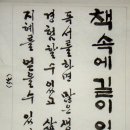 책 속에 길이 있
독서를 하면 많은
경험할 수 있고 삶
지혜를 얻을 수 있